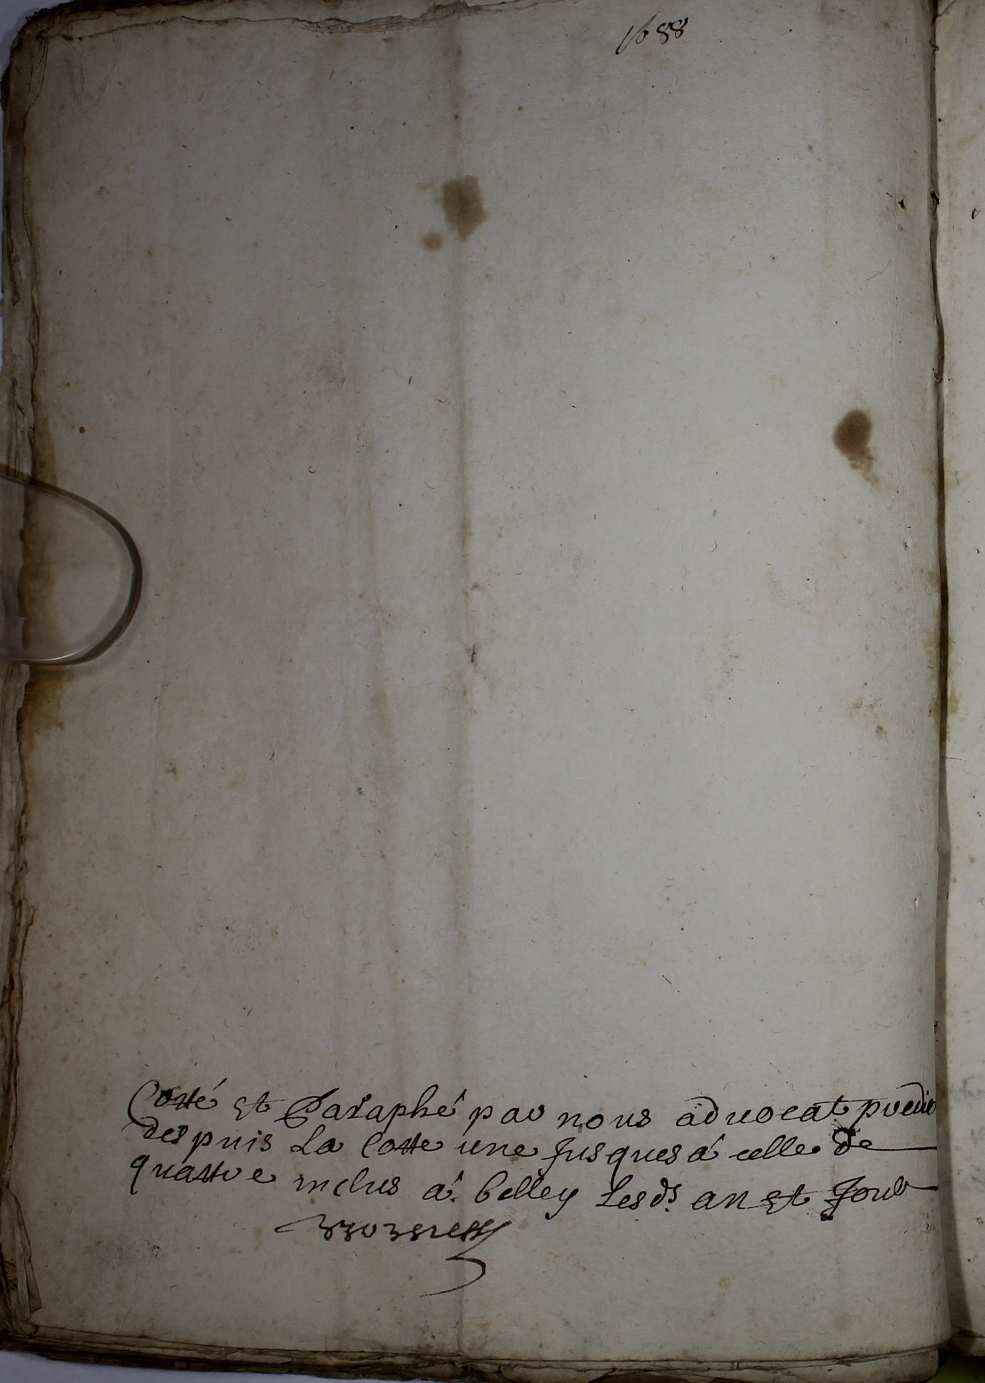 1688
Cotté et Paraphé par nous advocat predit
despuis La Cotte une Jusques á celle de
quattre inclus á belley Lesds. an et Jour